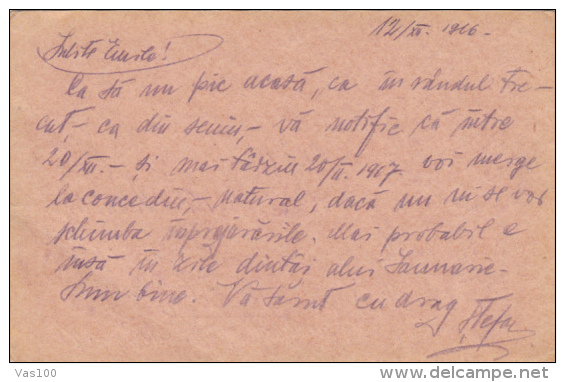 12/XII. 1916.-
Iubite Emile!
Ca să nu pic acasă, ca în rândul tre-
cut,- ca din senin,- vă notific că între
20/XII.- și mai târziu 20/II. 1917 voi merge
la concediu,- natural, dacă nu ni se vor
schimba împrejurările. Mai probabil e
însă în zile dintâi alui Ianuarie.-
Sunt bine. Vă sărut cu drag
Ștefan
Vas100
delcampe.net